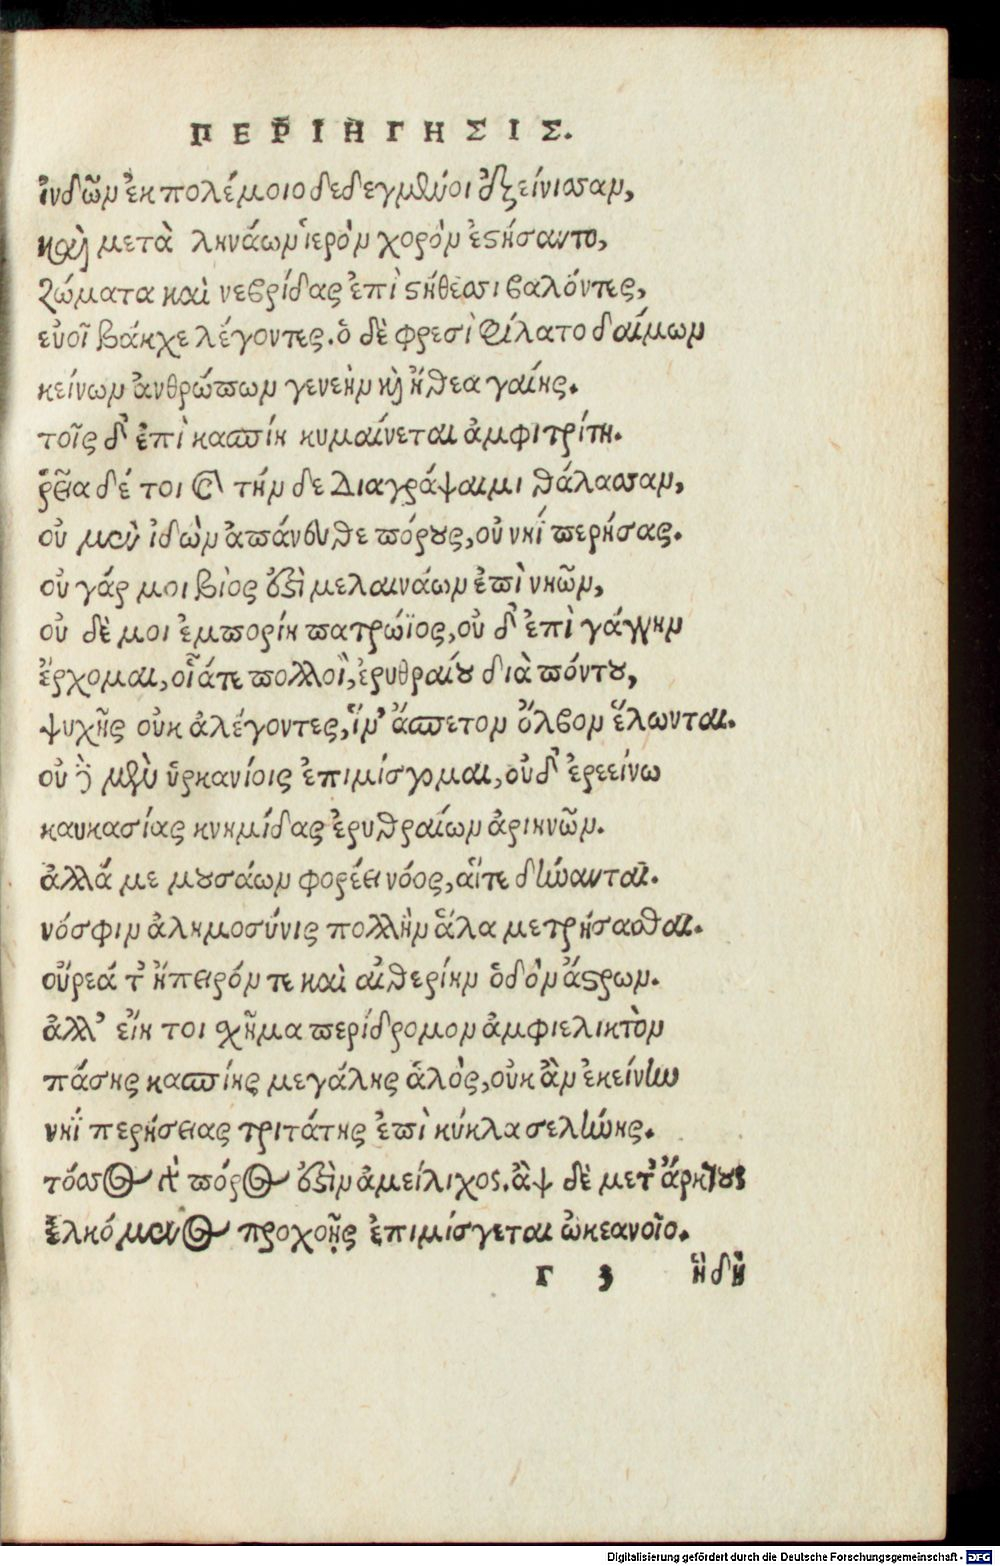 ΠΕΡΙΗΓΗΣΙΣ.
ἰνδῶν ἐκ πολέμοιο δεδεγμένοι ἐξείνισσαν,
καὶ μετὰ ληνάων ἱερὸν χορὸν ἐστήσαντο,
ζώματα καὶ νεβρίδας ἐπὶ στήθεσσι βαλόντες,
εὐοῖ βάκχε λέγοντες. ὁ δὲ φρεσὶ φίλατο δαίμων
κείνων ἀνθρώπων γενεὴν καὶ ἤθεα γαίης.
τοῖς δ' ἐπὶ κασπίη κυμαίνεται ἀμφιτρίτη.
ῥεῖα δέ τοι καὶ τήνδε διαγράψαιμι θάλασσαν,
οὐ μὲν ἰδὼν ἀπάνευθε πόρους, οὐ νηῒ περήσας.
οὐ γάρ μοι βίος ἐστὶ μελαινάων ἐπὶ νηῶν,
οὐ δὲ μοι ἐμπορίη πατρώϊος, οὐ δ' ἐπὶ γάγγην
ἔρχομαι, οἷάτε πολλοὶ, ἐρυθραίου διὰ πόντου,
ψυχῆς οὐκ ἀλέγοντες, ἵν' ἄσπετον ὄλβον ἕλωνται.
οὐ γὰρ μὲν ὑρκανίοις ἐπιμίσγομαι, οὐδ' ἐρεείνω
καυκασίας κνημίδας ἐρυθραίων ἀριηνῶν.
ἀλλά με μουσάων φορέει νόος, αἵτε δύνανται.
νόσφιν ἀλημοσύνις πολλὴν ἅλα μετρήσασθαι.
οὔρεά τ' ἤπειρόν τε καὶ αἰθερίην ὁδὸν ἄστρων.
ἀλλ' εἴη τοι σχῆμα περίδρομον ἀμφιελικτὸν
πάσης κασπίης μεγάλης ἁλὸς, οὐκ ἂν ἐκείνην
νηῒ περήσειας τριτάτης ἐπὶ κύκλα σελήνης.
τόσσος γὰρ πόρος ἐστὶν ἀμείλιχος. ἂψ δὲ μετ' ἄρκτους
ἑλκόμενος προχοῇς ἐπιμίσγεται ὠκεανοῖο.
γ 3 ἤδη
Digitalisierung gefördert durch die Deutsche Forschungsgemeinschaft - DFG